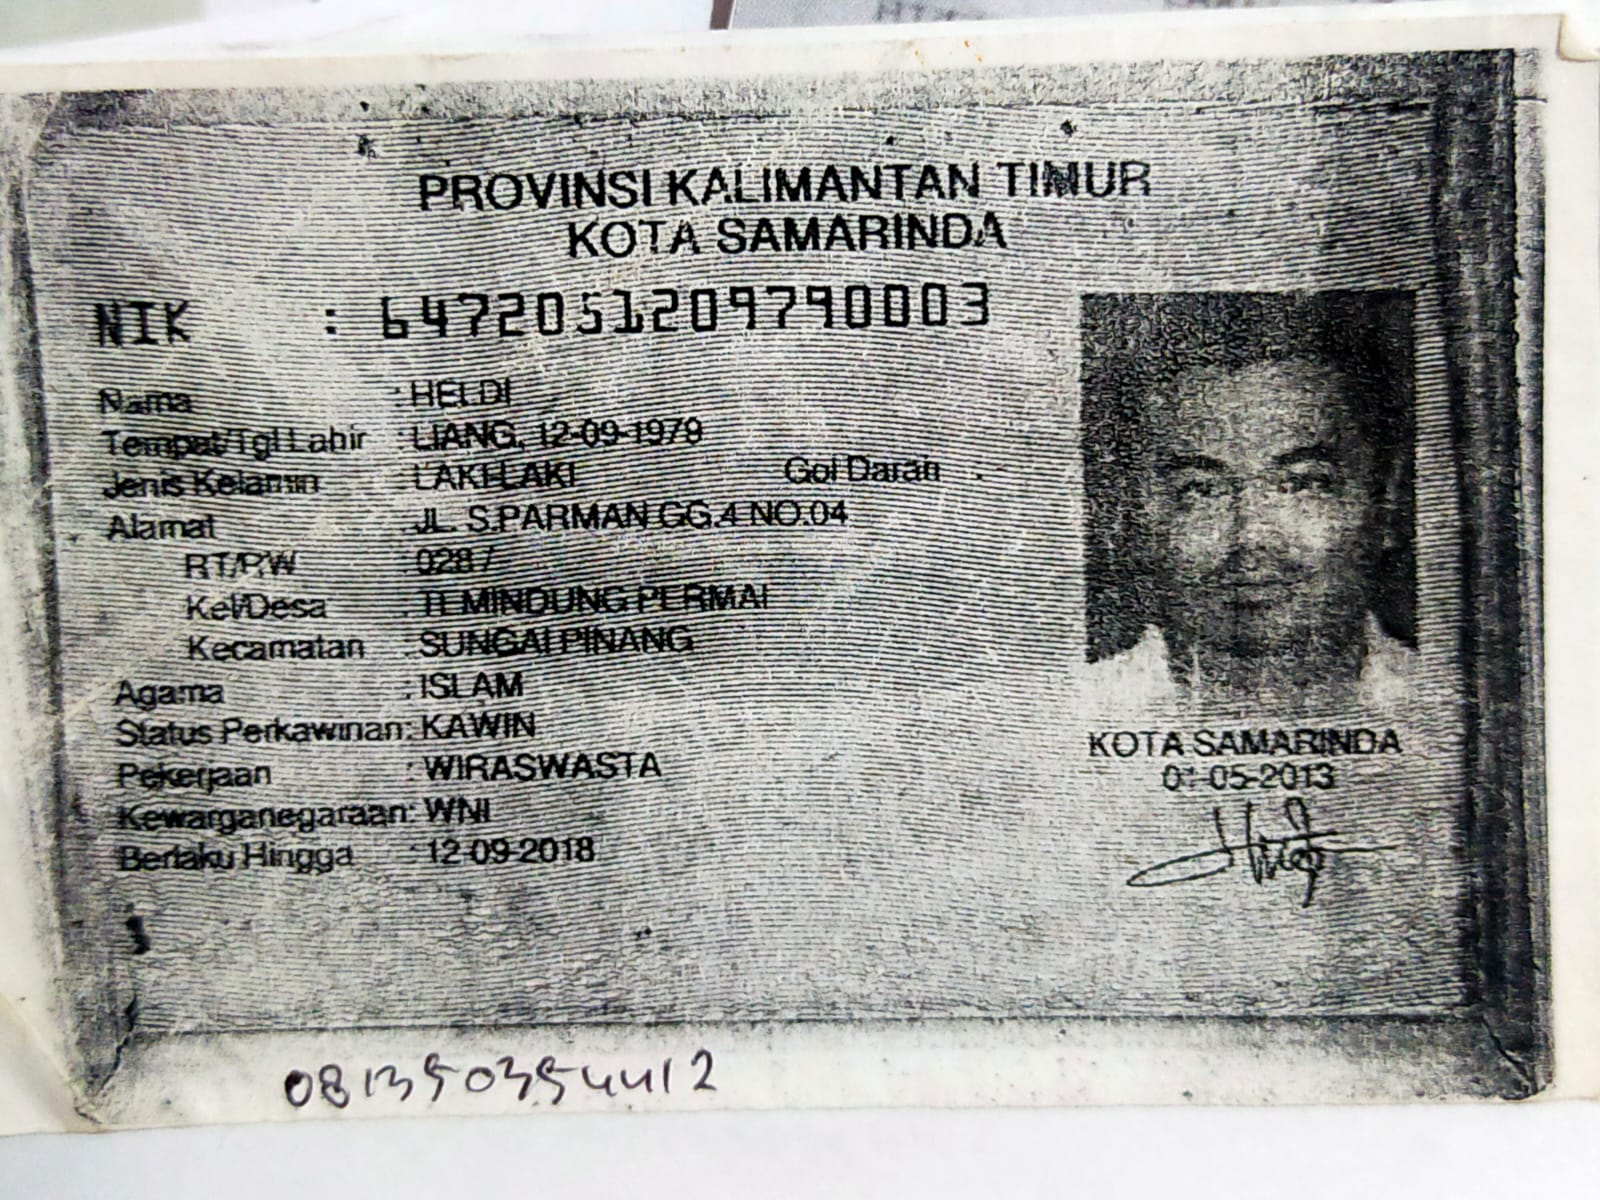 PROVINSI KALIMANTAN TIMUR
KOTA SAMARINDA
NIK : 6472051209790003
Nama : HELDI
Tempat/Tgl Lahir : LIANG, 12-09-1979
Jenis Kelamin : LAKI-LAKI Gol Darah :
Alamat : JL. S.PARMAN GG.4 NO.04
RT/RW : 028 /
Kel/Desa : TEMINDUNG PERMAI
Kecamatan : SUNGAI PINANG
Agama : ISLAM
Status Perkawinan: KAWIN
Pekerjaan : WIRASWASTA
Kewarganegaraan: WNI
Berlaku Hingga : 12-09-2018
KOTA SAMARINDA
01-05-2013
081350354412